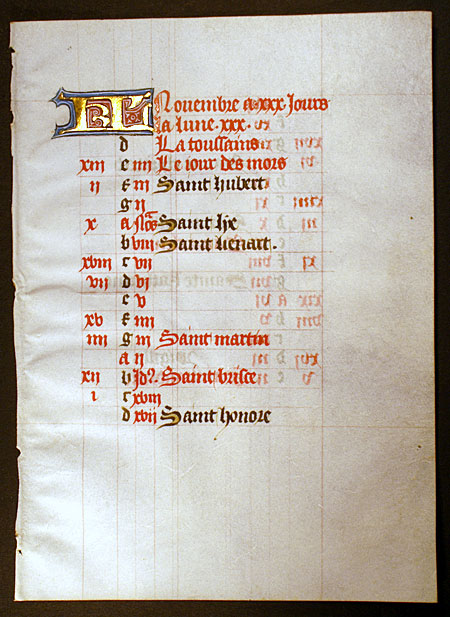 KL Nouembre a .xxx. Jours
La lune .xxx.
d La toussains
xiii e iiii Le iour des mors
ii f iii Saint hubert
g ii
x A Nõs Saint
b viii Saint lienart.
xviii c vii
vii d vi
e v
xv f iiii
iiii g iii Saint martin
A ii
xii b Jd? Saint brisce
i c xviii
d xvii Saint honore